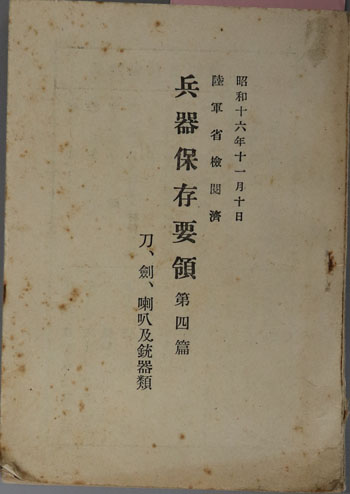 昭和十六年十一月十日
陸軍省檢閲濟
兵器保存要領 第四篇
刀、劍、喇叭及銃器類